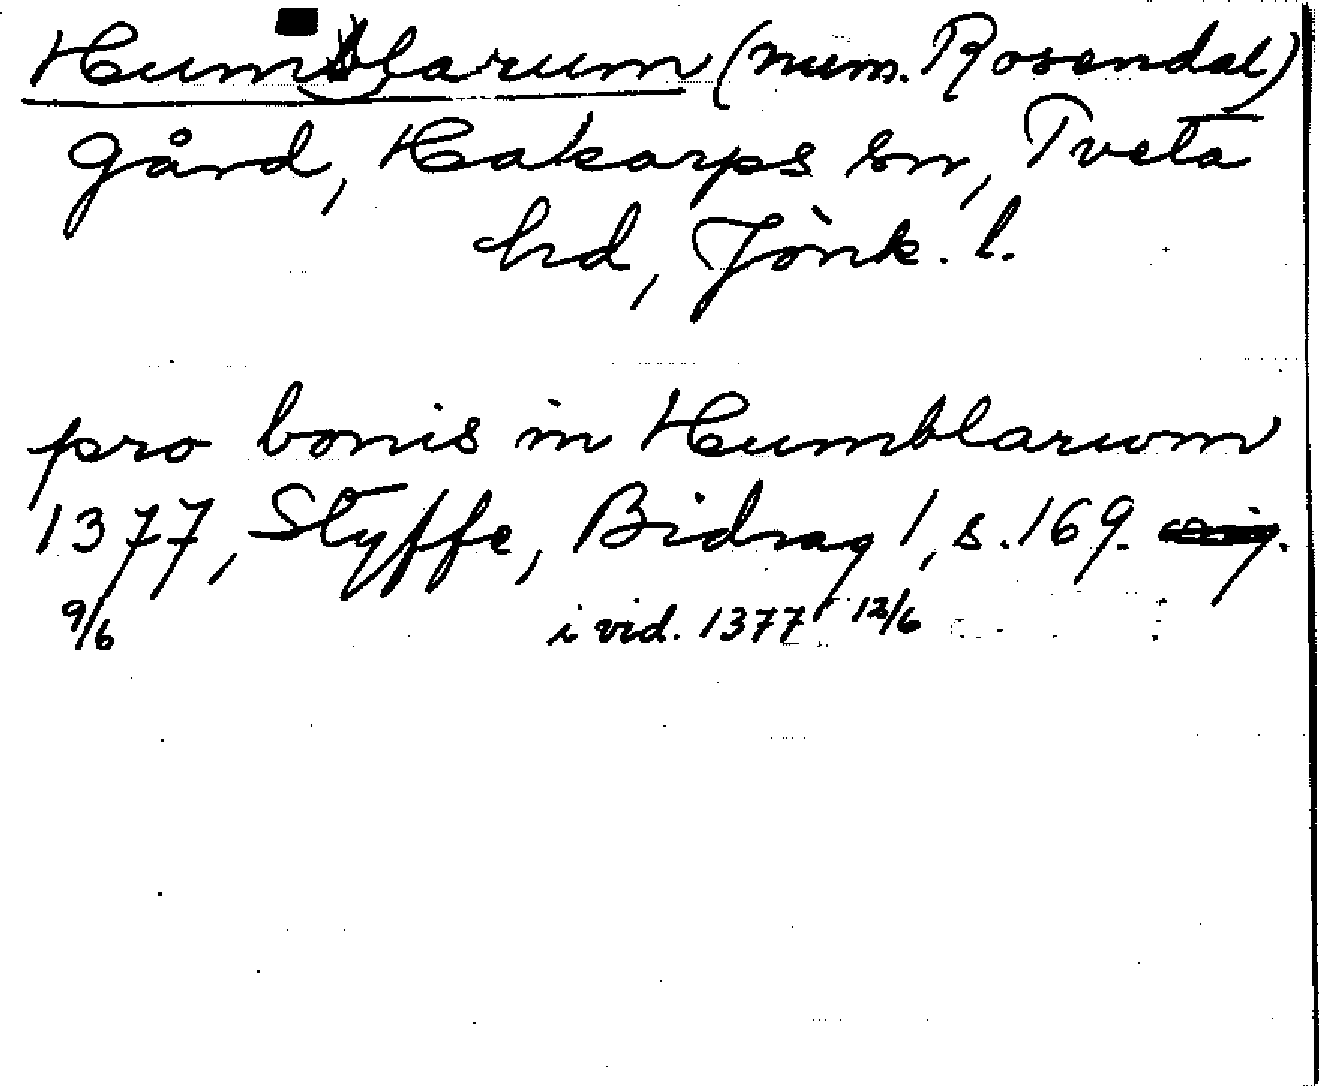 Humblarum (num. Rosendal)
gård, Hakarps sn, Tveta
hd, Jönk. l.
pro bonis in Humblarwm
1377, Styffe, Bidrag 1, s. 169.
9/6
i vid. 1377 12/6